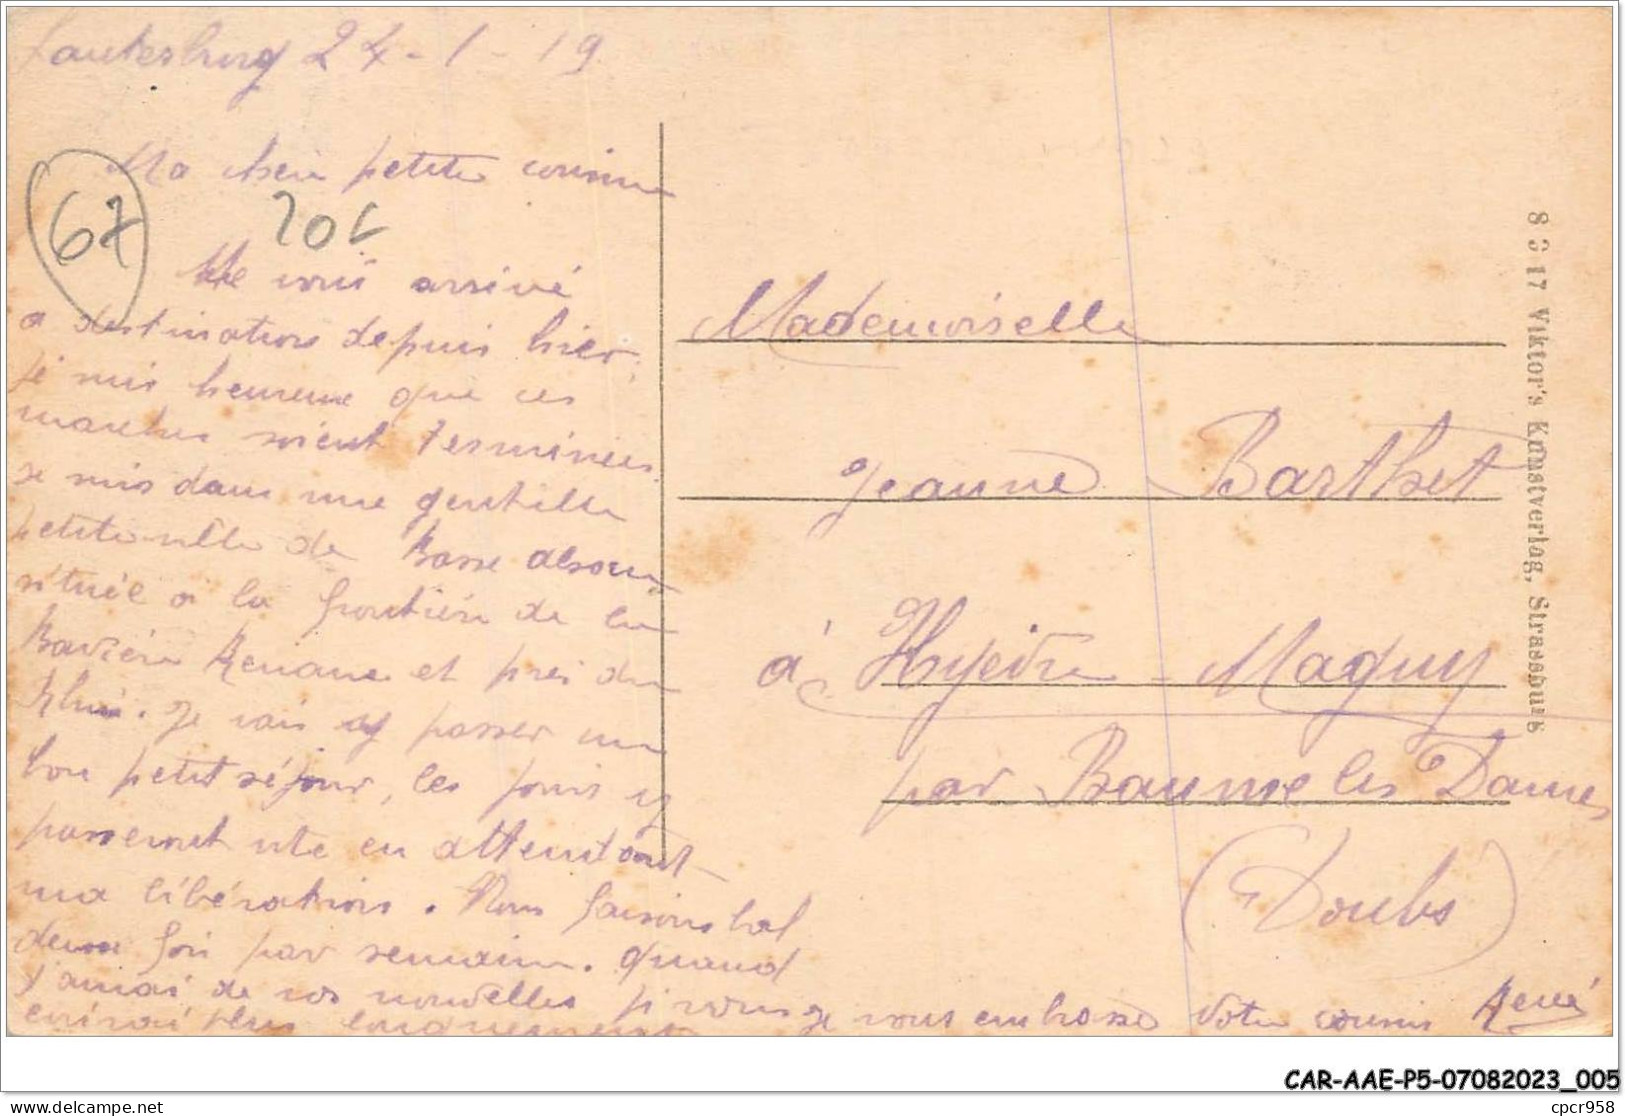 Lauterburg 24-1-19
Ma chère petite cousine
67
20f
Me voici arrivé
a destination depuis hier,
je suis heureux que ces
marches soient terminées
je suis dans une gentille
petite ville de Basse alsace
située a la frontière de la
Bavière Rénane et près du
Rhin. Je vais y passer un
bon petit séjour, les jours y
passeront vite en attendant
ma libération. Nous faisons bal
deux fois par semaine. quand
j'aurai de vos nouvelles je vous
écrirai plus longuement
je vous embrasse Votre cousin René
Mademoiselle
Jeanne Barthet
à Hyèvre-Maguy
par Baume les Dames
(Doubs)
8 3 17 Viktor's Kunstverlag, Strassburg
CAR-AAE-P5-07082023_005
delcampe.net
cpcr958